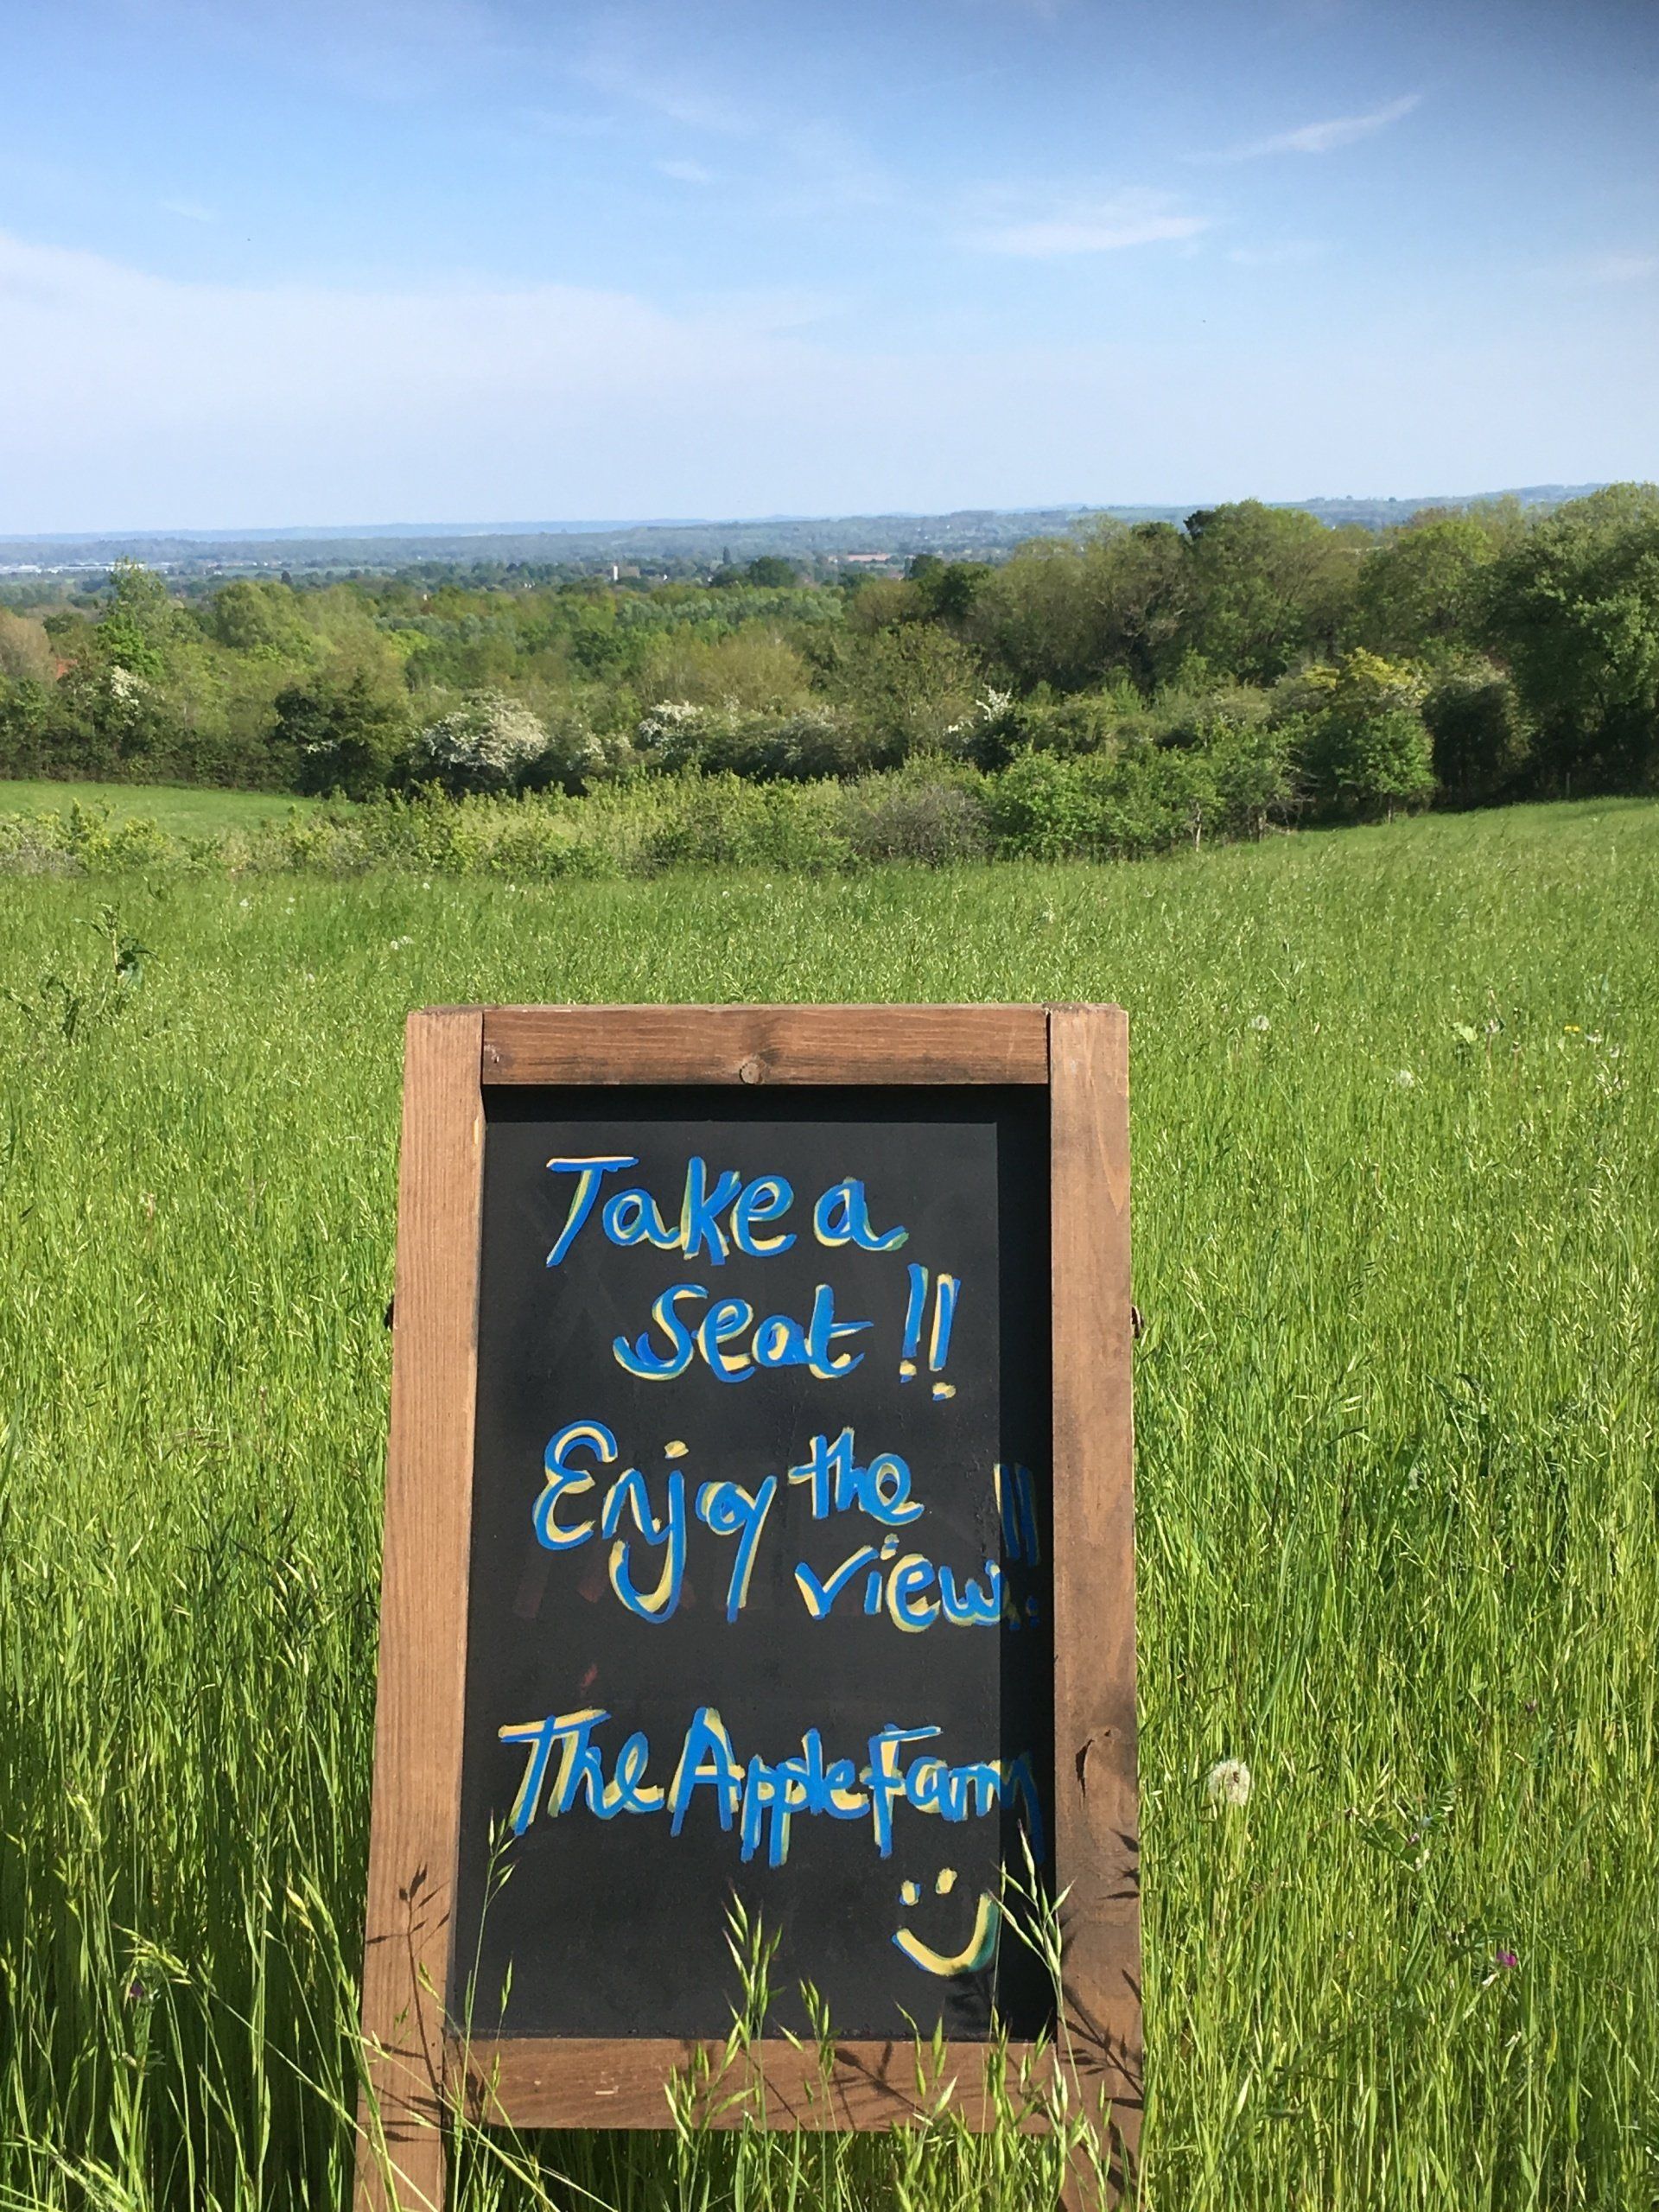 Take a
seat!!
Enjoy the
view!!
The Apple Farm